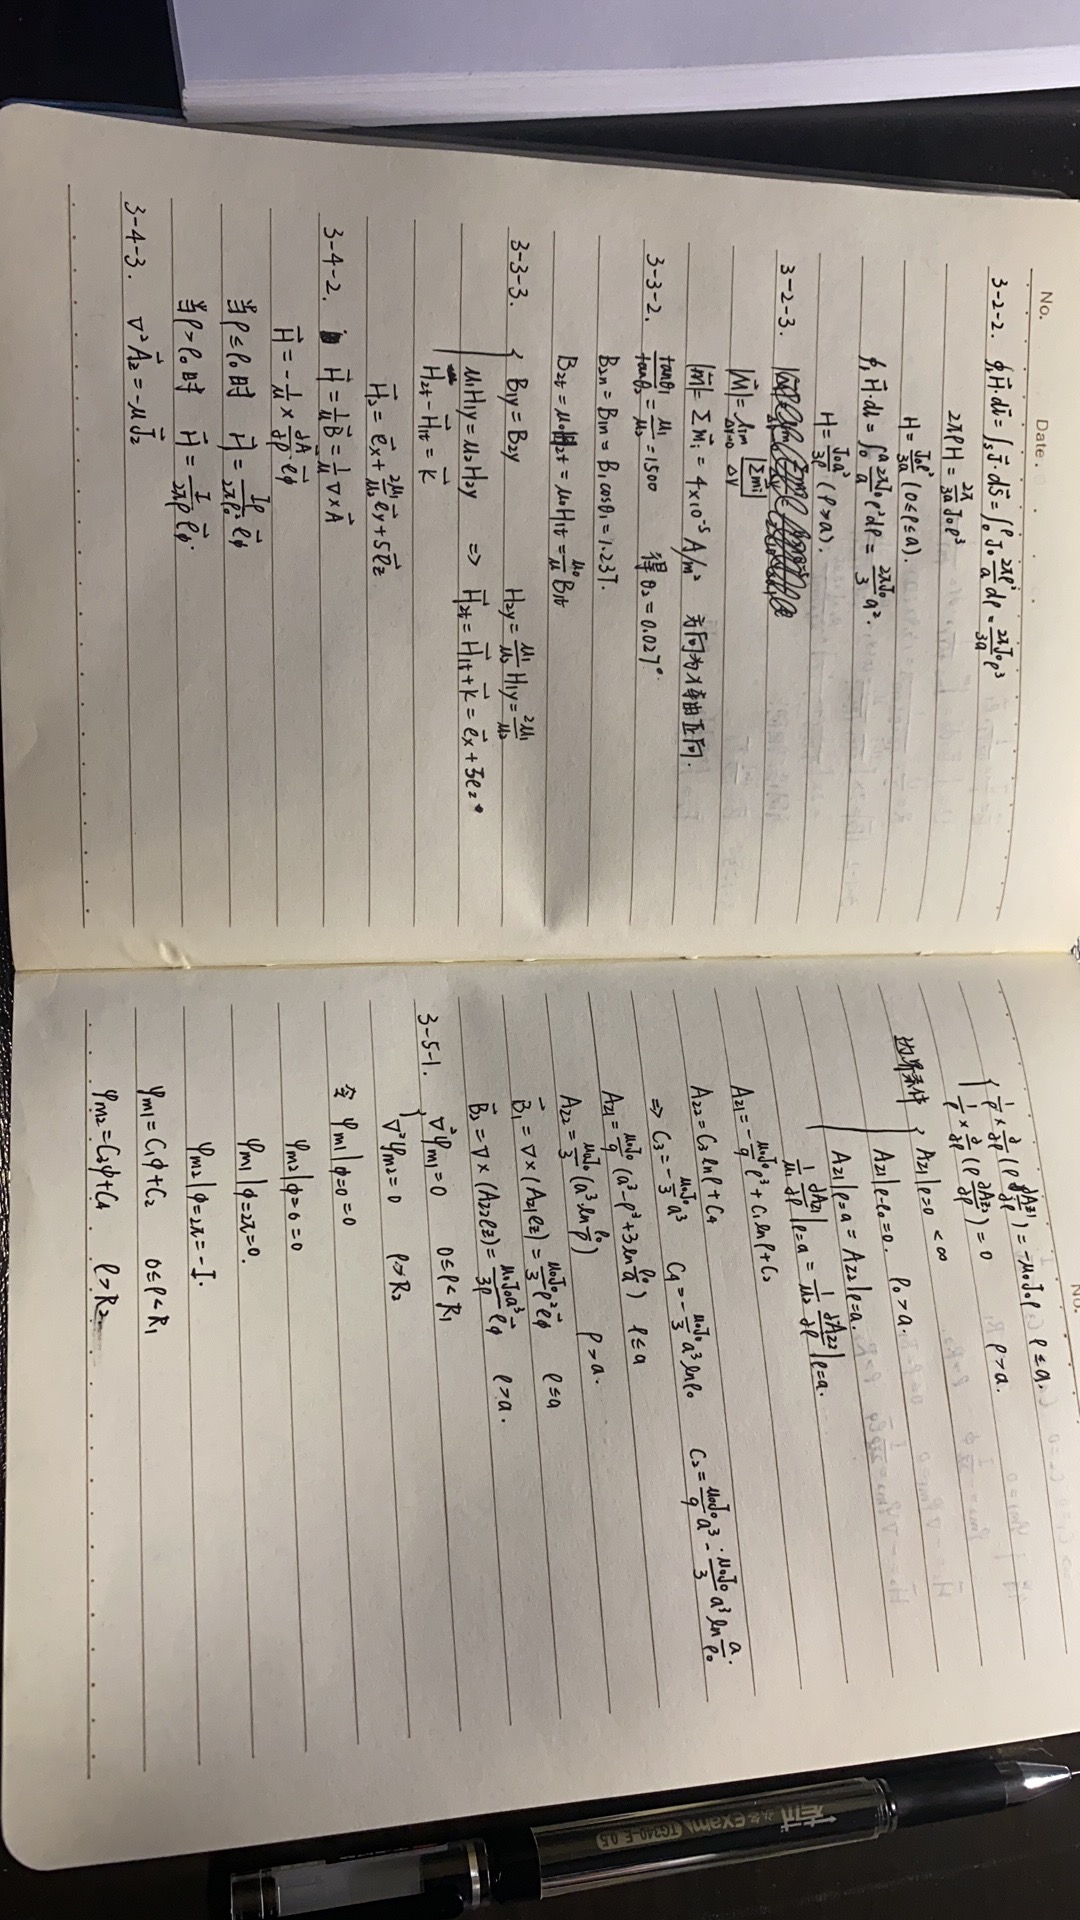 No.
Date.
3-2-2. ∮ₗH⃗·dl⃗ = ∫ₛJ⃗·dS⃗ = ∫₀^ρ J₀ 2πρ²/a dρ = 2πJ₀/3a ρ³
2πρH = 2π/3a J₀ρ³
H = J₀ρ²/3a (0≤ρ≤a).
∮ₗH⃗·dl = ∫₀^a 2πJ₀/a ρ²dρ = 2πJ₀/3 a².
H = J₀a²/3ρ (ρ>a).
3-2-3.
|M⃗| = lim_{ΔV→0} |Σmi|/ΔV
|m⃗| = Σm⃗i = 4×10⁻⁵ A/m² 方向为x轴正向.
3-3-2. tanθ1/tanθ2 = μ1/μ2 = 1500 得 θ2 = 0.027°
B2n = B1n = B1cosθ1 = 1.23T.
B2t = μ0H2t = μ0H1t = μ0/μ B1t
3-3-3. { B1y = B2y H2y = μ1/μ2 H1y = 2μ1/μ2
μ1H1y = μ2H2y ⇒ H⃗2t = H⃗1t + K⃗ = e⃗x + 5e⃗z
H⃗2t − H⃗1t = K⃗
H⃗2 = e⃗x + 2μ1/μ2 e⃗y + 5e⃗z
3-4-2. H⃗ = 1/μ B⃗ = 1/μ ∇×A⃗
H⃗ = −1/μ × dA/dρ e⃗φ
当ρ≤ρ0时 H⃗ = Iρ/2πρ0² e⃗φ
当ρ>ρ0时 H⃗ = I/2πρ e⃗φ.
3-4-3. ∇²A⃗z = −μJ⃗z
No.
{ 1/ρ × ∂/∂ρ (ρ ∂Az1/∂ρ) = −μ0J0ρ ρ≤a.
1/ρ × ∂/∂ρ (ρ ∂Az2/∂ρ) = 0 ρ>a.
边界条件 { Az1|ρ=0 < ∞
Az1|ρ=ρ0 = 0. ρ0>a.
Az1|ρ=a = Az2|ρ=a.
1/μ1 ∂Az1/∂ρ|ρ=a = 1/μ2 ∂Az2/∂ρ|ρ=a.
Az1 = −μ0J0/9 ρ³ + C1lnρ + C2
Az2 = C3lnρ + C4
⇒ C3 = −μ0J0/3 a³ C4 = −μ0J0/3 a³lnρ0 C2 = μ0J0/9 a³ − μ0J0/3 a³ ln a/ρ0.
Az1 = μ0J0/9 (a³−ρ³+3ln ρ0/a) ρ≤a
Az2 = μ0J0/3 (a³ln ρ0/ρ) ρ>a.
B⃗1 = ∇×(Az1e⃗z) = μ0J0/3 ρ²e⃗φ ρ≤a
B⃗2 = ∇×(Az2e⃗z) = μ0J0a³/3ρ e⃗φ ρ>a.
3-5-1. { ∇²φm1 = 0 0≤ρ<R1
∇²φm2 = 0 ρ>R2
令 φm1|φ=0 = 0
φm2|φ=0 = 0
φm1|φ=2π = 0.
φm2|φ=2π = −I.
φm1 = C1φ+C2 0≤ρ<R1
φm2 = C3φ+C4 ρ>R2
exam
TG340-E 0.5